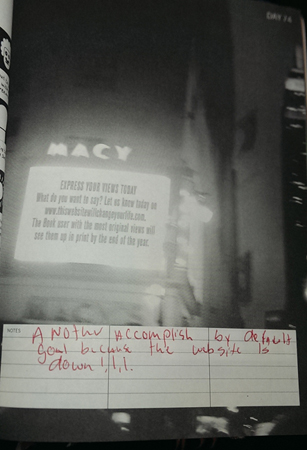 DAY 74
MACY
EXPRESS YOUR VIEWS TODAY
What do you want to say? Let us know today on
www.thiswebsitewillchangeyourlife.com.
The Book user with the most original views will
see them up in print by the end of the year.
NOTES
ANother Accomplish by default
goal because the website is
down!,!,!.